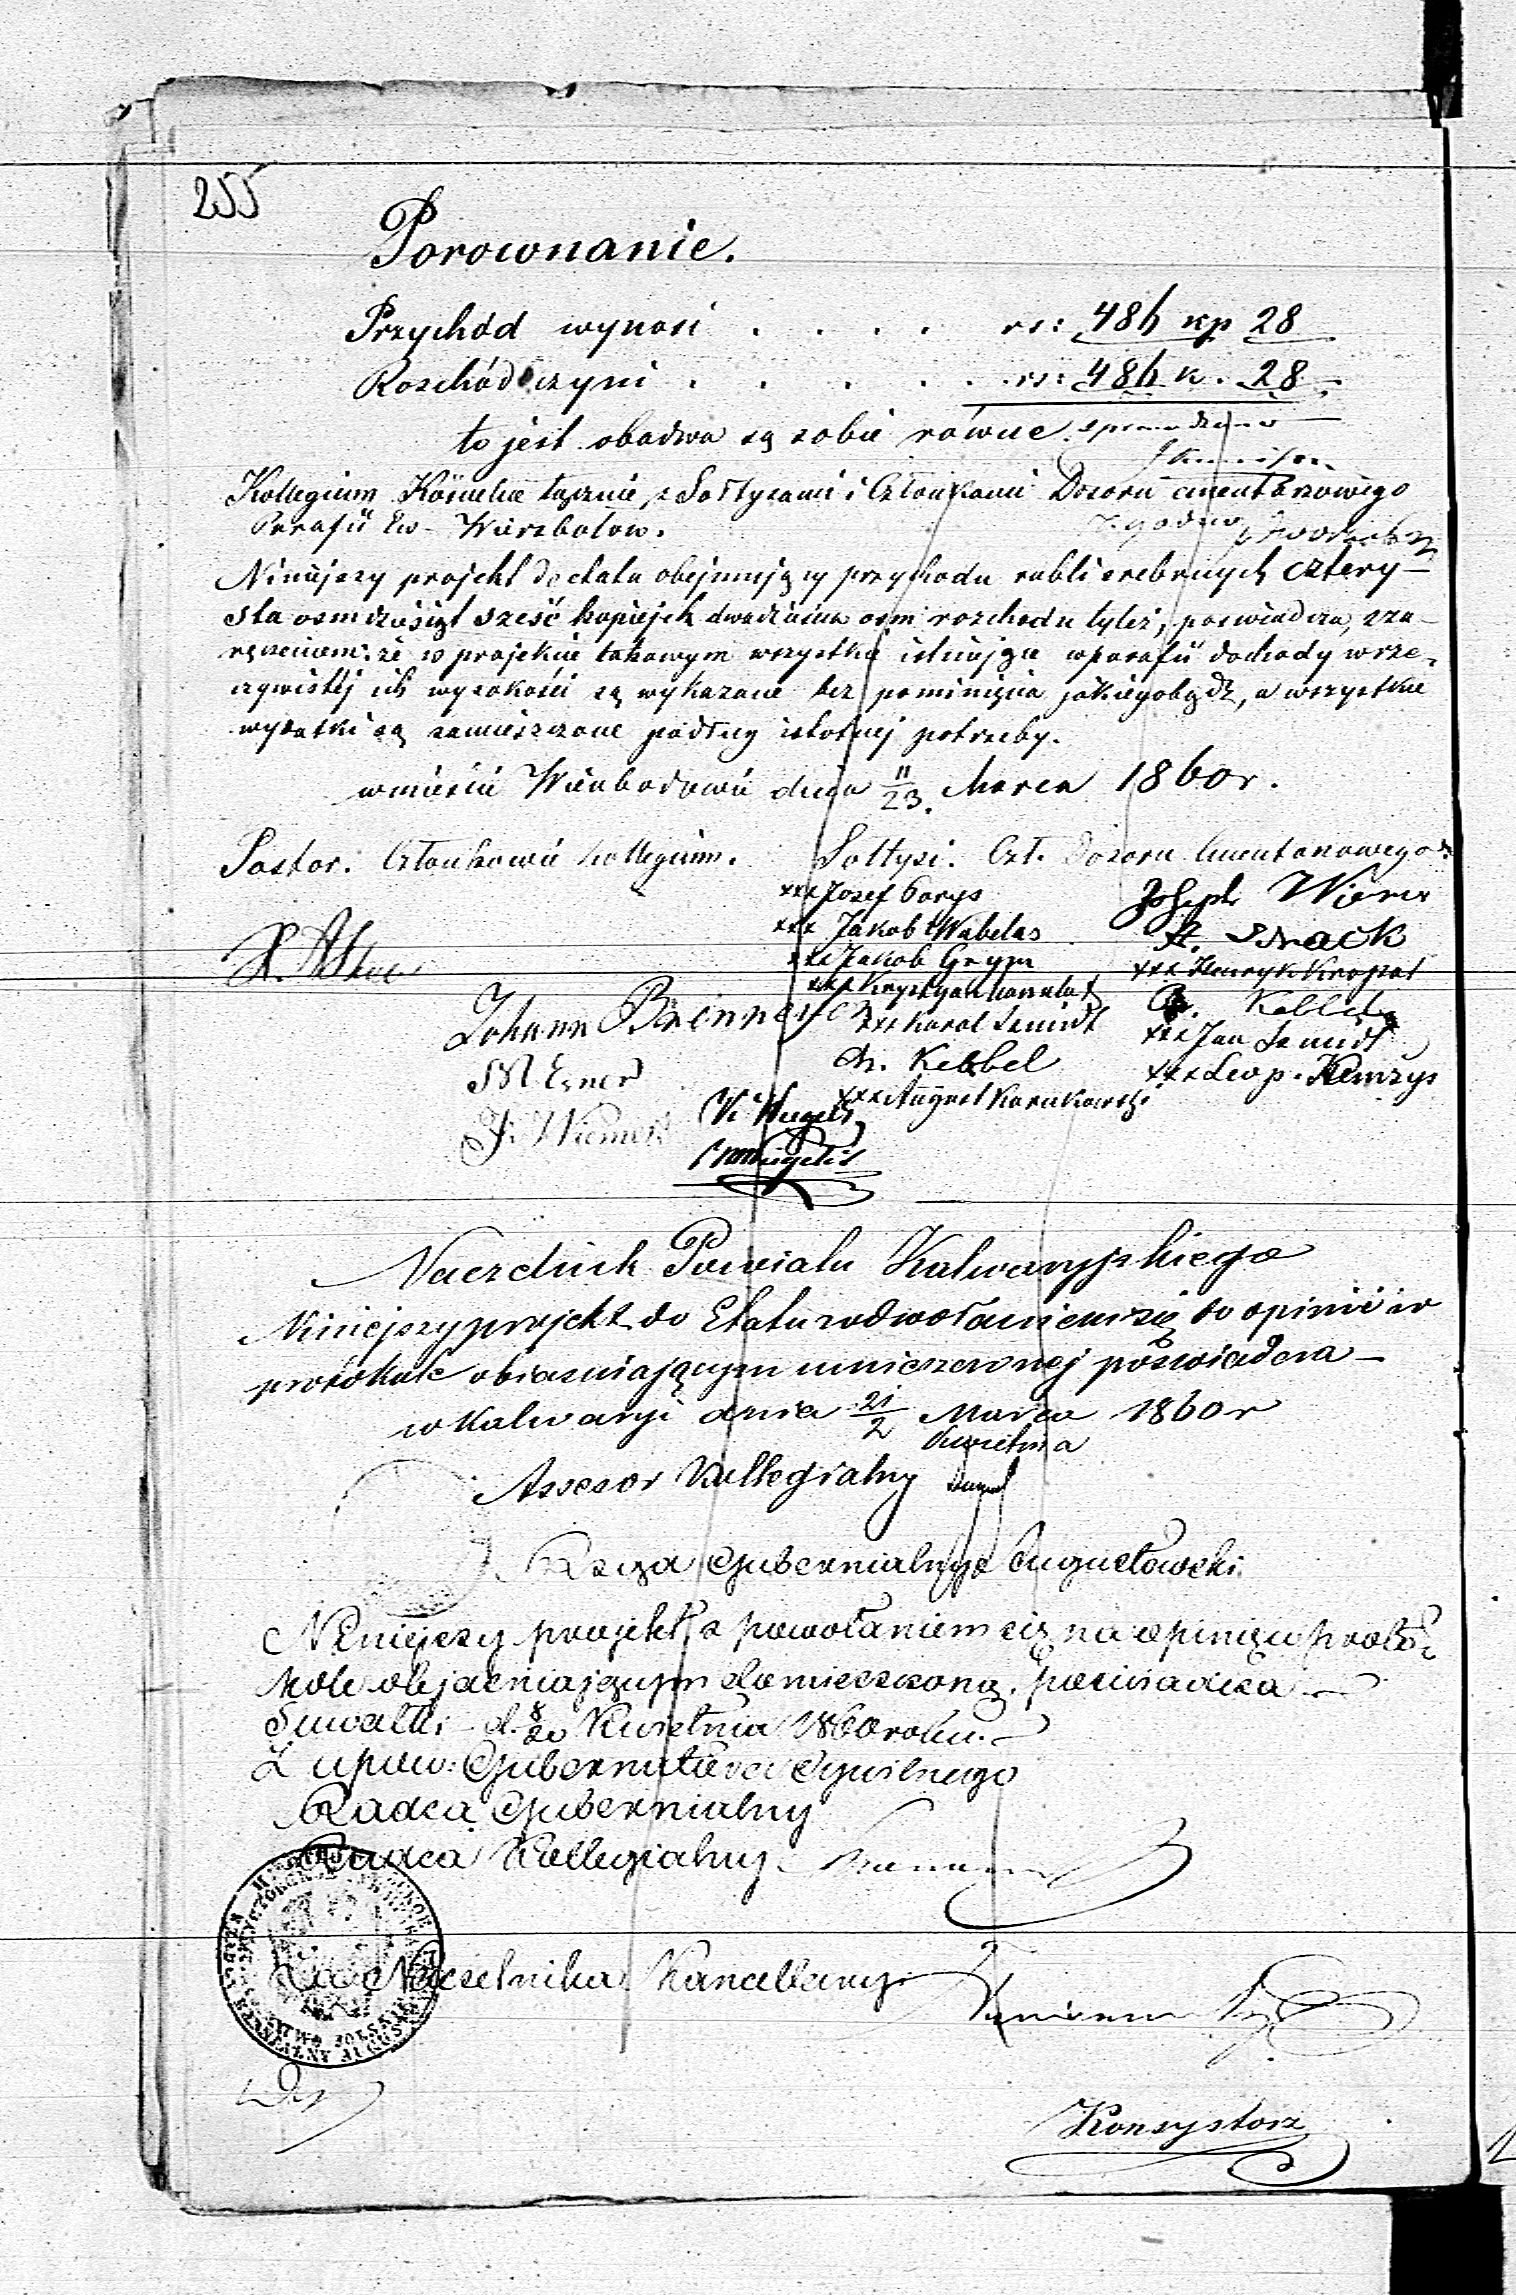 255
Porownanie.
Przychód wynosi . . . . rs: 486 kp 28
Rozchód czyni . . . . . rs: 486 k. 28.
to jest obadwa są sobie równe. sprawdzono
Kollegium Kościelne łącznie z Sołtysami i Członkami Dozoru cmentarzowego
Parafii Ew- Wierzbołow. zgodno
Niniejszy projekt do etatu obejmujący przychodu rubli srebrnych cztery-
sta osmdziesiąt sześć kopiejek dwadzieścia osm rozchodu tyleż, poswiadcza, z za-
ręczeniem: że w projekcie takowym wszystkie istniejące w parafii dochody w rze-
czywistej ich wysokości są wykazane bez pominięcia jakiegobądź, a wszystkie
wydatki są zamieszczone podług istotnej potrzeby.
w mieście Wierzbołowie dnia 11/23. Marca 1860 r.
Pastor. Członkowie kollegium. Sołtysi. Czł. Dozoru Cmentarzowego
xxx Jozef Parys Joseph Wiemer
xxx Jakob Wabelas A.
xxx Jakob Grym xxx Henryk Kropat
xxx Krystyan
Johann Brinner xxx Karol Szmidt xxx Jan Szmidt
M Exner Ch. Kebbel xxx Leop.
J. Wiemer xxx August
Naczelnik Powiatu Kalwaryjskiego
Niniejszy projekt do Etatu z odwołaniem się do opinii w
protokule obiasniającym umieszczonej poświadcza -
w Kalwaryi dnia 21/2 Marca/Kwietnia 1860 r
Assesor Kollegialny
Rząd Gubernialny Augustowski
Niniejszy projekt z powołaniem się na opinię w proto-
kole objaśniającym zamieszczoną, poświadcza
Suwałki d. 8/20 Kwietnia 1860 roku.
Z upow: Gubernatora Cywilnego
Radca Gubernialny
Radca Kollegialny
Za Naczelnika Kancellaryi
Konsystorz